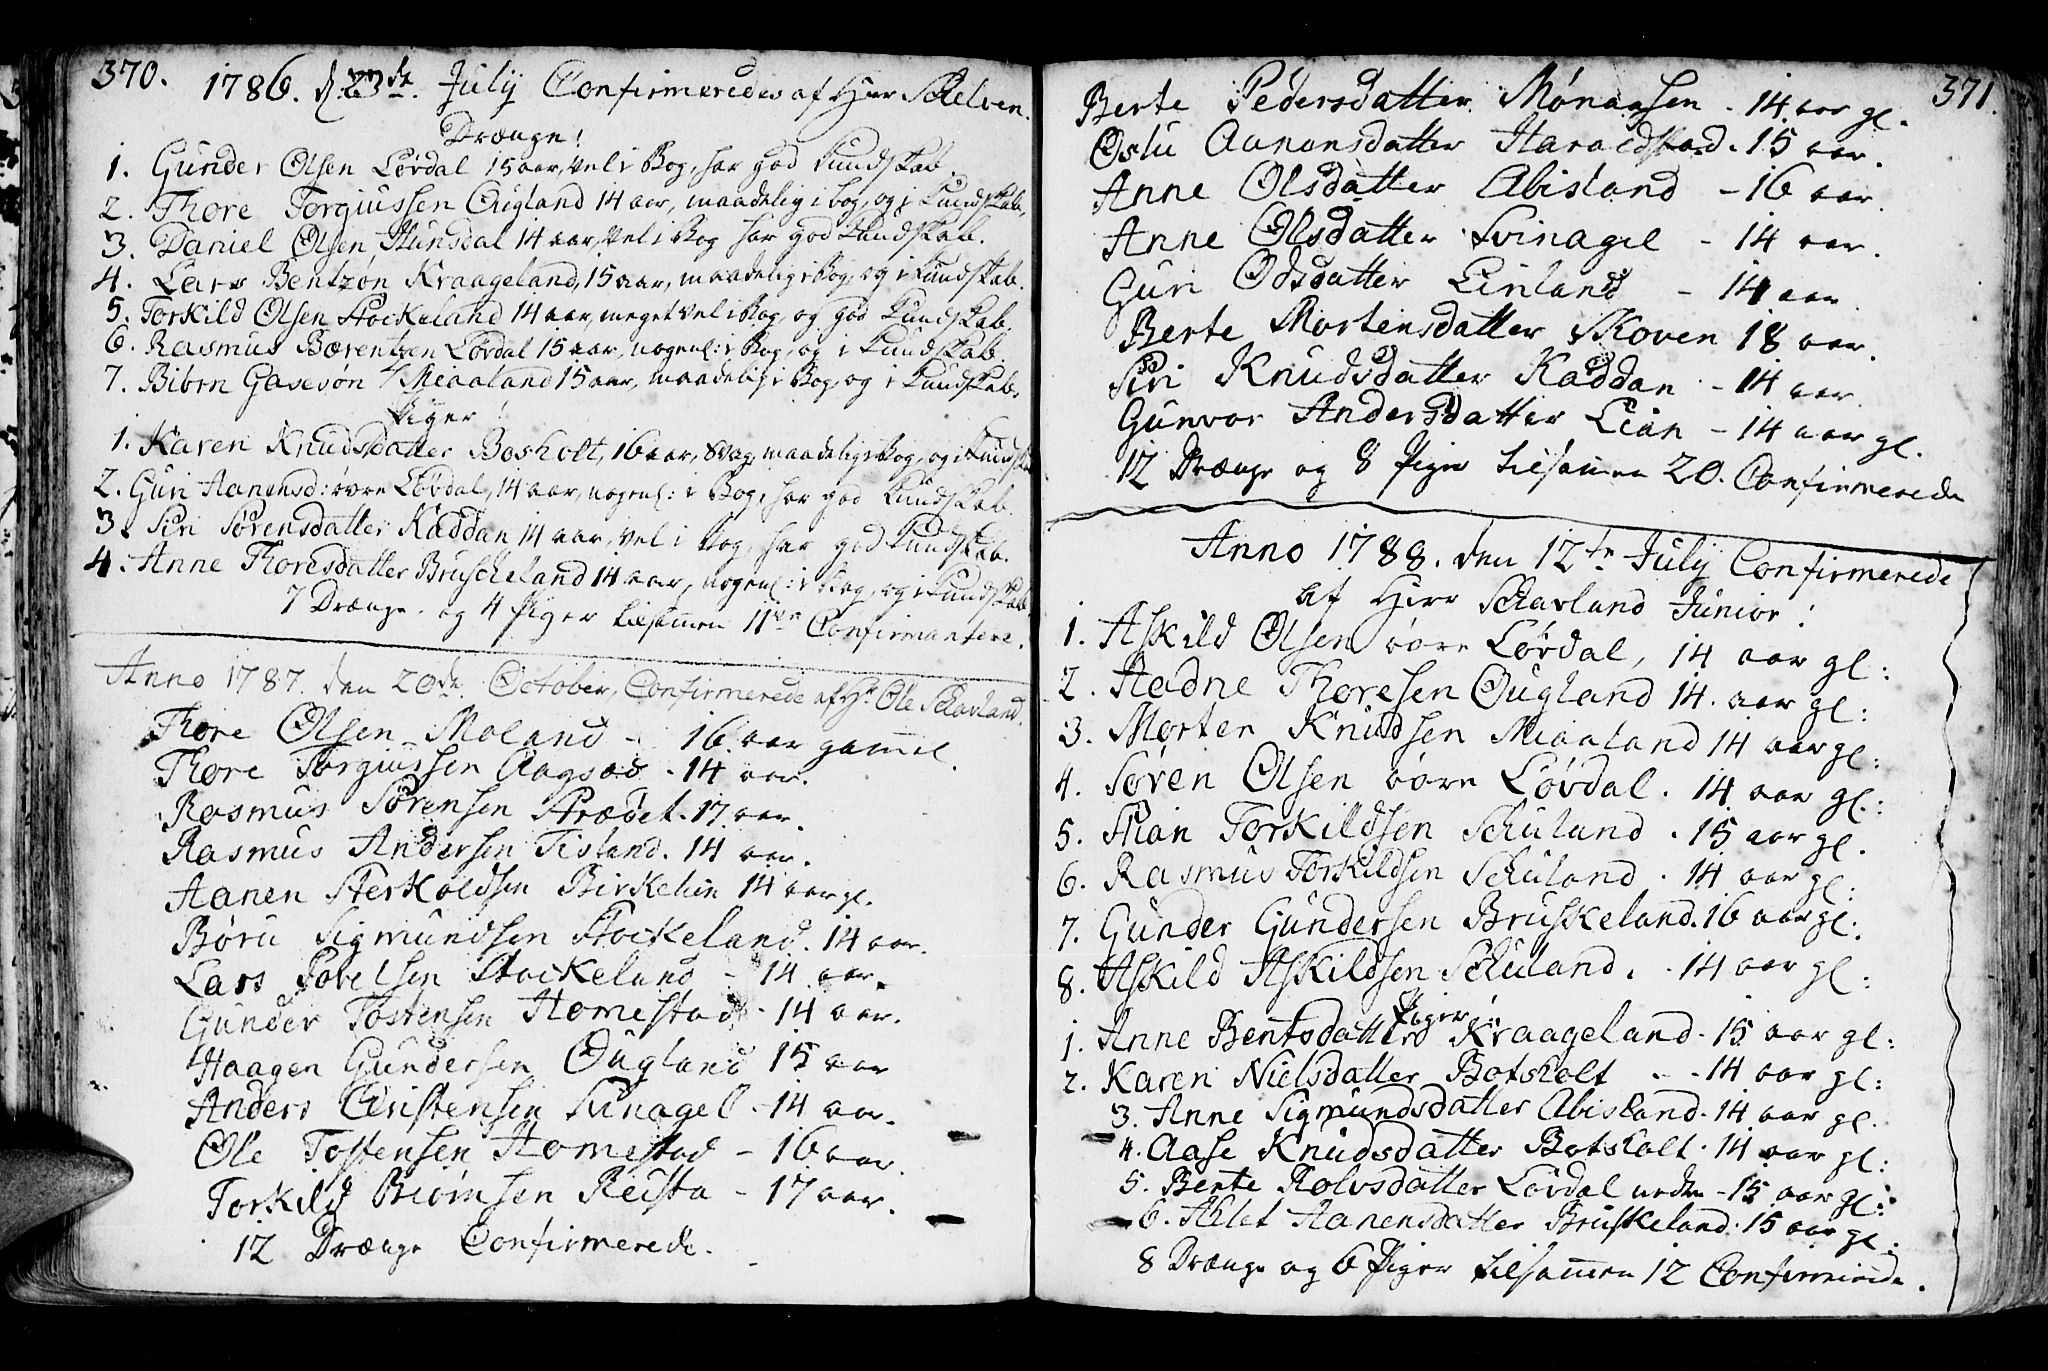 370.
1786. d. 23de. July Confirmeredes af Herr Schelven.
Drænge!
1. Gunder Olsen Løvdal 15 aar, vel i Bog, har god Kundskab.
2. Thore Torgiussen Ougland 14 aar, maadelig i bog, og i Kundskab.
3. Daniel Olsen Hunsdal 14 aar, vel i Bog har god Kundskab.
4. Lars Bentzøn Kraageland, 15 aar, maadelig i Bog, og i Kundskab.
5. Torkild Olsen Stockeland 14 aar, meget vel i Bog, og god Kundskab.
6. Rasmus Bærentsen Løvdal 15 aar, nogenl: i Bog, og i Kundskab.
7. Biørn Gasesøn Miaaland 15 aar, maadelig i Bog, og i Kundskab.
Piger!
1. Karen Knudsdatter Bosholt, 16 aar, svag maadelig i Bog, og i Kundsk
2. Guri Aanensd: øvre Løvdal, 14 aar, nogenl: i Bog, har god Kundskab.
3. Siri Sørensdatter Kaddan 14 aar, vel i Bog, har god Kundskab.
4. Anne Thoresdatter Bruskeland 14 aar, nogenl: i Bog, og i Kundskab
7 Drænge og 4 Piger tilsammen 11ve Confirmantere.
Anno 1787. den 20de. October, Confirmerede af Hr Ole Schavland.
Thore Olsen Moland - 16 aar gammel.
Thore Torgiussen Aagsæd - 14 aar.
Rasmus Sørensen Strædet - 17 aar.
Rasmus Andersen Tisland. 14 aar.
Aanen Sterkoldsen Birkelien 14 aar gl.
Børu Sigmundsen Stockeland. 14 aar.
Lars Povelsen Stockeland - 14 aar.
Gunder Tostensen Homestad - 14 aar.
Haagen Gundersen Ougland 15 aar
Anders Christensen Svinagel - 14 aar.
Ole Tostensen Homestad - 16 aar.
Torkild Biørnsen Reista - 17 aar.
12 Drænge Confirmerede.
371.
Berte Pedersdatter Mønagsen - 14 aar gl.
Oslu Aanonsdatter Haraldstad. 15 aar.
Anne Olsdatter Abisland - 16 aar.
Anne Olsdatter Svinagel - 14 aar.
Guri Odsdatter Linland - 14 aar
Berte Mortensdatter Skoven 18 aar.
Siri Knudsdatter Kaddan - 14 aar.
Gunvor Andersdatter Lian - 14 aar gl.
12 Drænge og 8 Piger tilsammen 20. Confirmerede
Anno 1788. den 12te July Confirmerede
af Herr Schavland Junior!
1. Askild Olsen øvre Løvdal, 14 aar gl:
2. Aadne Thoresen Ougland 14. aar gl:
3. Morten Knudsen Miaaland 14 aar gl:
4. Søren Olsen øvre Løvdal. 14 aar gl:
5. Stian Torkildsen Schuland. 15 aar gl.
6. Rasmus Torkildsen Schuland. 14 aar gl:
7. Gunder Gundersen Bruskeland. 16 aar gl:
8. Askild Askildsen Schuland. 14 aar gl:
Piger!
1. Anne Bentsdatter Kraageland. 15 aar gl:
2. Karen Nielsdatter Botsholt - - 14 aar gl:
3. Anne Sigmundsdatter Abisland. 14 aar gl.
4. Aase Knudsdatter Botsholt. 14 aar gl:
5. Berte Rolvsdatter Løvdal nedre - 15 aar gl:
6. Ahlet Aanensdatter Bruskeland. 15 aar gl:
8 Drænge og 6 Piger tilsammen 12 Confirmerede.